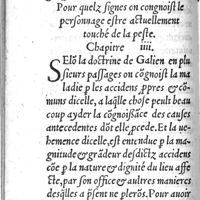 Pour quelz signes on congnoist le
personnage estre actuellement
touché de la peste.
Chapitre iiii.
SElō la doctrine de Galien en plu
sieurs passages on cōgnoist la ma
ladie p les accidens ,ppres & cō=
muns dicelle, a laq̄lle chose peult beau
coup ayder la cōgnoissāce des causes
antecedentes dōt elle ,pcede. Et la ve=
hemence dicelle, est entendue p la ma=
gnitude & grādeur desdictz accidens
cōme p la nature & dignité du lieu affe
cte, par son office & aultres manieres
desq̄lles a p̄sent ne plerōs. Pour avoir